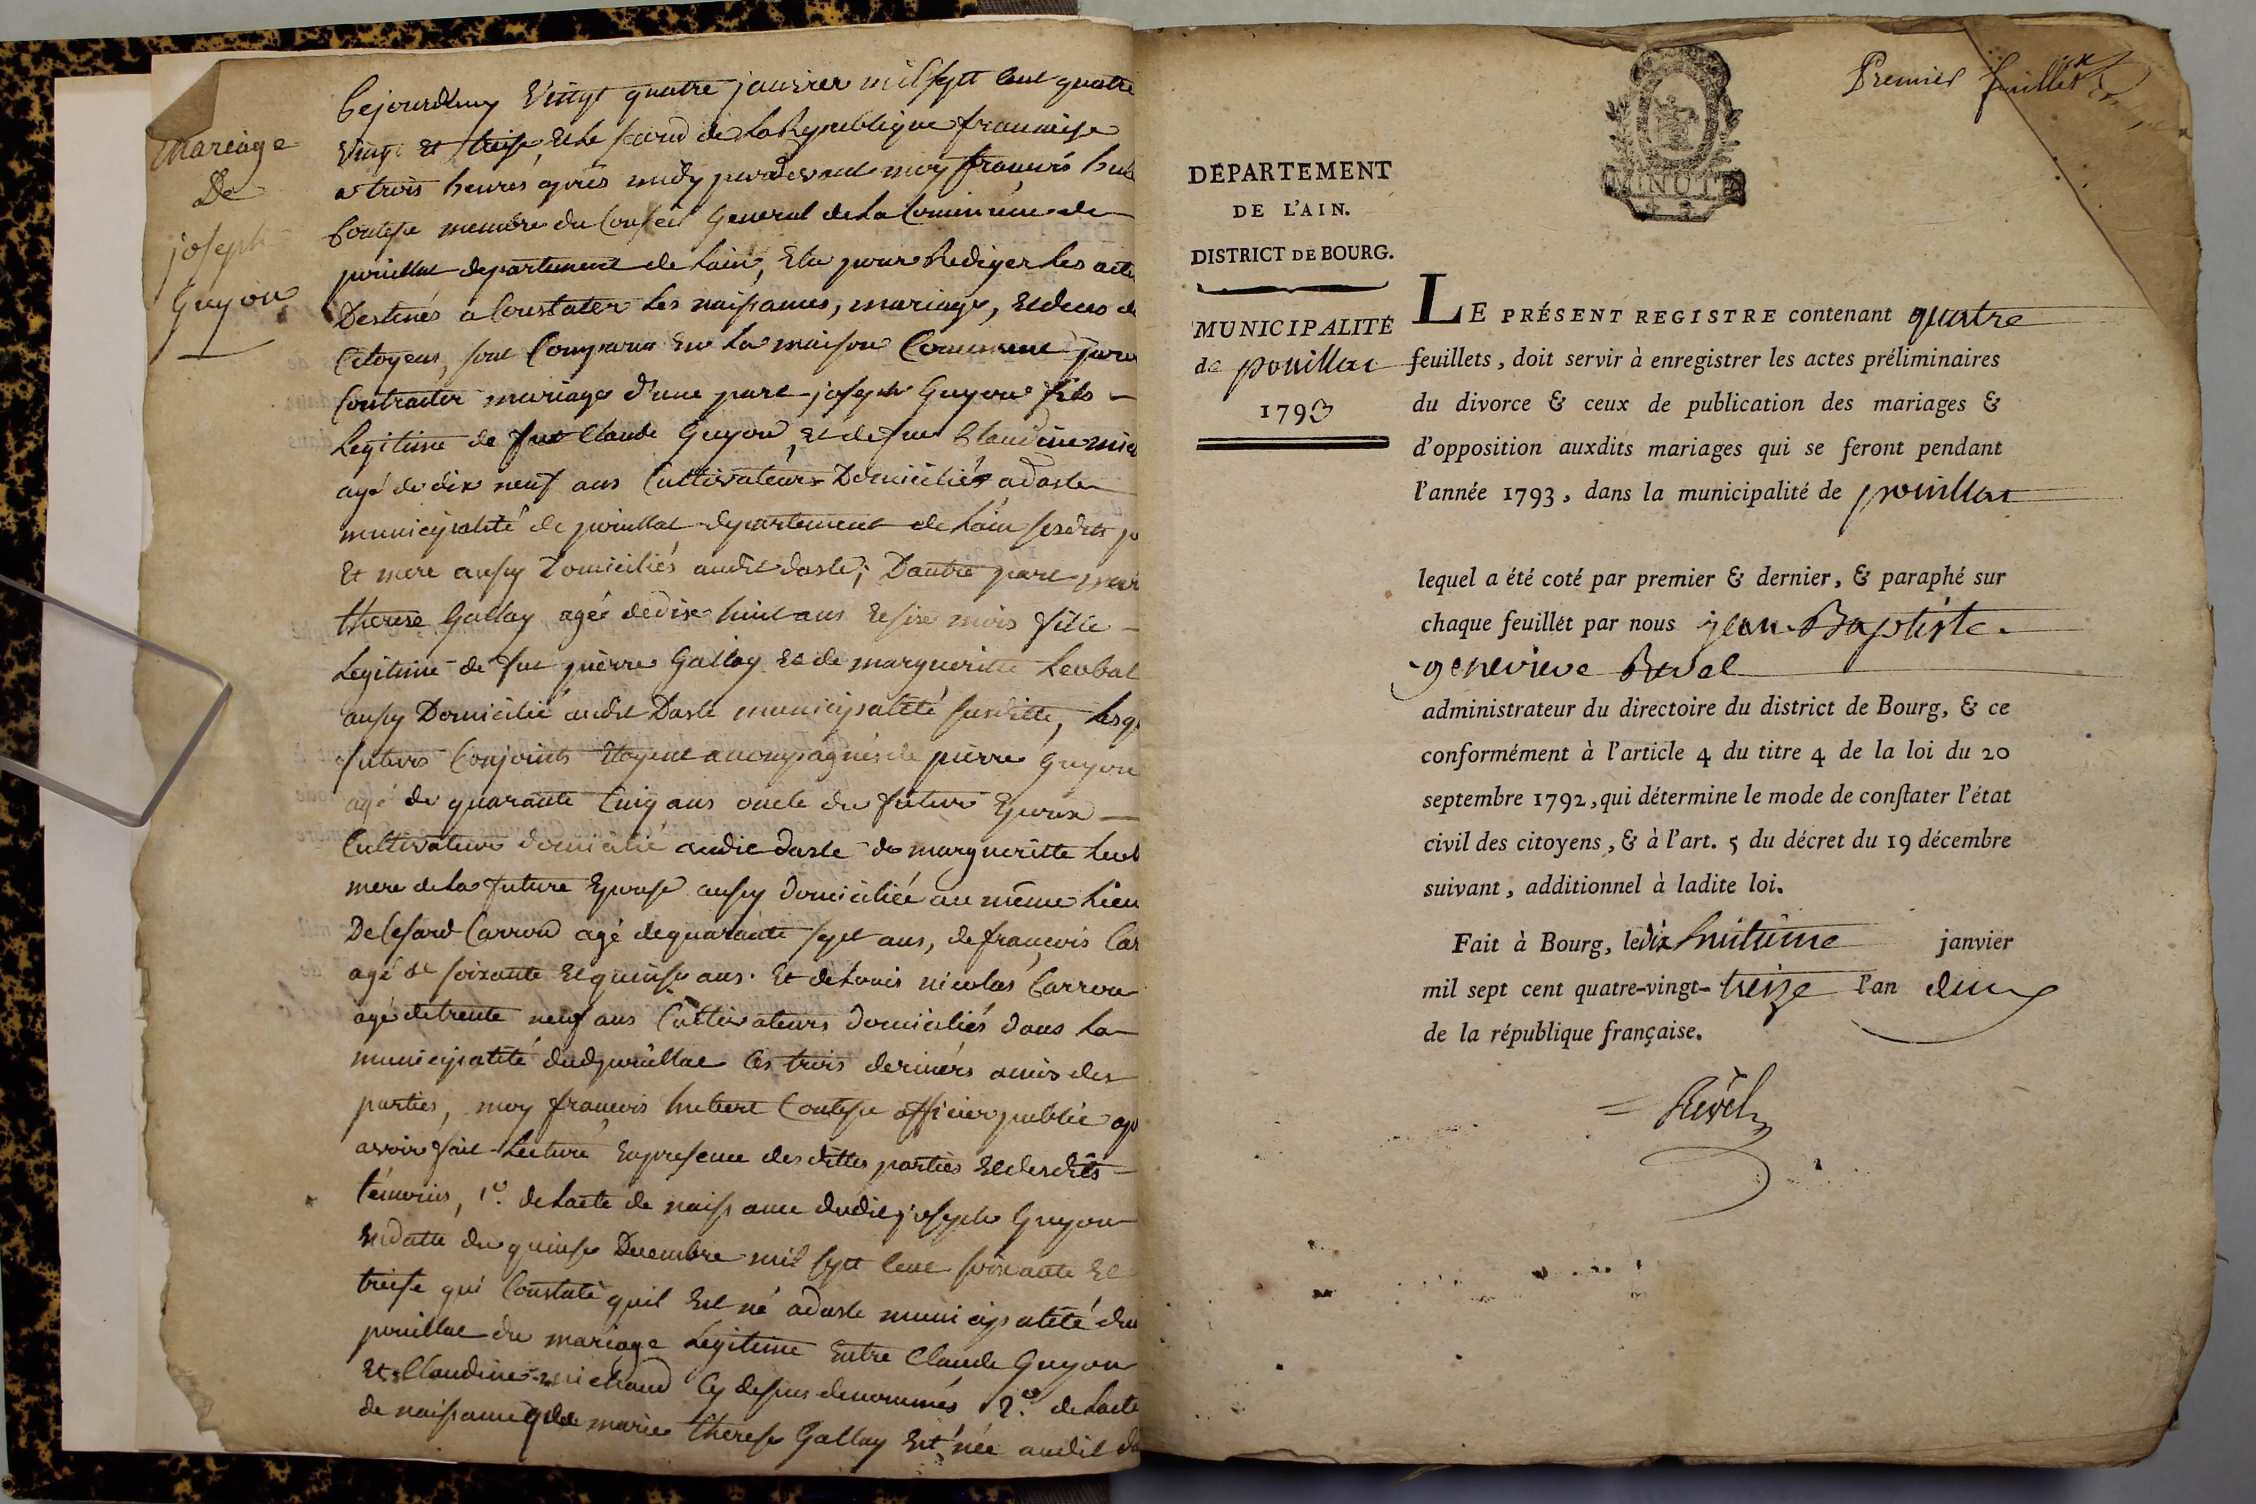 Mariage
De
joseph
Guyon
Cejourdhuy Vingt quatre janvier mil sept cent quatre
Vingt et treise, et le second de La Republique francaise
a trois heures après midy pardevant moy francois hub
Contesse membre du Conseil General de La Commune de
pouillat departement de Lain, Elu pour Rediger Les acte
Destinés a Constater Les naissances, mariage, et deces d
Citoyens, sont Comparus En La maison Commune pour
Contracter mariage d'une part joseph Guyon fils
Legitime de feu Claude Guyon, et de feue Claudine mic
agé de dix neuf ans Cultivateurs Domiciliés a dasle
municipalité de pouillat departement de Lain sesdits p
Et mere aussy Domiciliés audit dasle; Dautre part mar
therese Gallay agée de dix huit ans et six mois fille
Legitime de feu pierre Gallay et de margueritte Leubat
aussy Domicilié audit Dasle municipalité susditte, Lesq
futurs Conjoints Etoyent accompagnés de pierre Guyon
agé de quarante Cinq ans oncle du futur Epoux
Cultivateur domicilié audit dasle de margueritte Leub
mere de La future Epouse aussy domiciliée au même Lieu
De Cesard Carron agé de quarante sept ans, de francois Car
agé de soixante et quinse ans. Et de Louis nicolas Carron
agé de trente neuf ans Cultivateurs domiciliés dans La
municipalité dud pouillat Ces trois derniers amis des
parties, moy francois hubert Contesse officier public ap
avoir fait Lecture En presence des dittes parties Et desdits
témoins, 1º. de Lacte de naissance dudit joseph Guyon
En datte du quinse Decembre mil sept Cent soixante Et
treise qui Constate quil Est né a dasle municipalité du
pouillat du mariage Legitime Entre Claude Guyon
Et Claudine michaud Cy dessus denommés 2º. de Lacte
de naissance que marie therese Gallay Est née audit da
Premier feuillet
MINUTE
DEPARTEMENT
DE L'AIN.
DISTRICT DE BOURG.
MUNICIPALITÉ
de pouillat
1793
LE PRÉSENT REGISTRE contenant quatre
feuillets, doit servir à enregistrer les actes préliminaires
du divorce & ceux de publication des mariages &
d'opposition auxdits mariages qui se feront pendant
l'année 1793, dans la municipalité de pouillat
lequel a été coté par premier & dernier, & paraphé sur
chaque feuillet par nous jean Baptiste
genevieve Revel
administrateur du directoire du district de Bourg, & ce
conformément à l'article 4 du titre 4 de la loi du 20
septembre 1792, qui détermine le mode de conſtater l'état
civil des citoyens, & à l'art. 5 du décret du 19 décembre
suivant, additionnel à ladite loi.
Fait à Bourg, le dix huitieme janvier
mil sept cent quatre-vingt-treize l'an deux
de la république française.
Revel